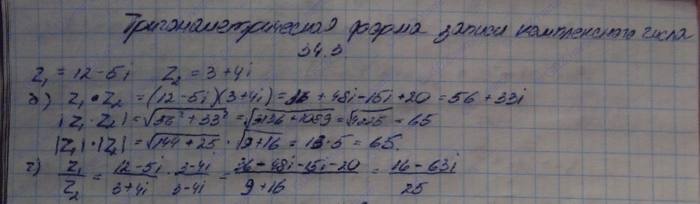 Тригонометрическая форма записи комплексного числа
34.5
z₁ = 12 - 5i z₂ = 3 + 4i
б) z₁ · z₂ = (12 - 5i)(3 + 4i) = 36 + 48i - 15i + 20 = 56 + 33i
|z₁ · z₂| = √56² + 33² = √3136 + 1089 = √4225 = 65
|z₁| · |z₂| = √144 + 25 · √9 + 16 = 13 · 5 = 65.
г) z₁/z₂ = 12 - 5i/3 + 4i · 3 - 4i/3 - 4i = 36 - 48i - 15i - 20/9 + 16 = 16 - 63i/25